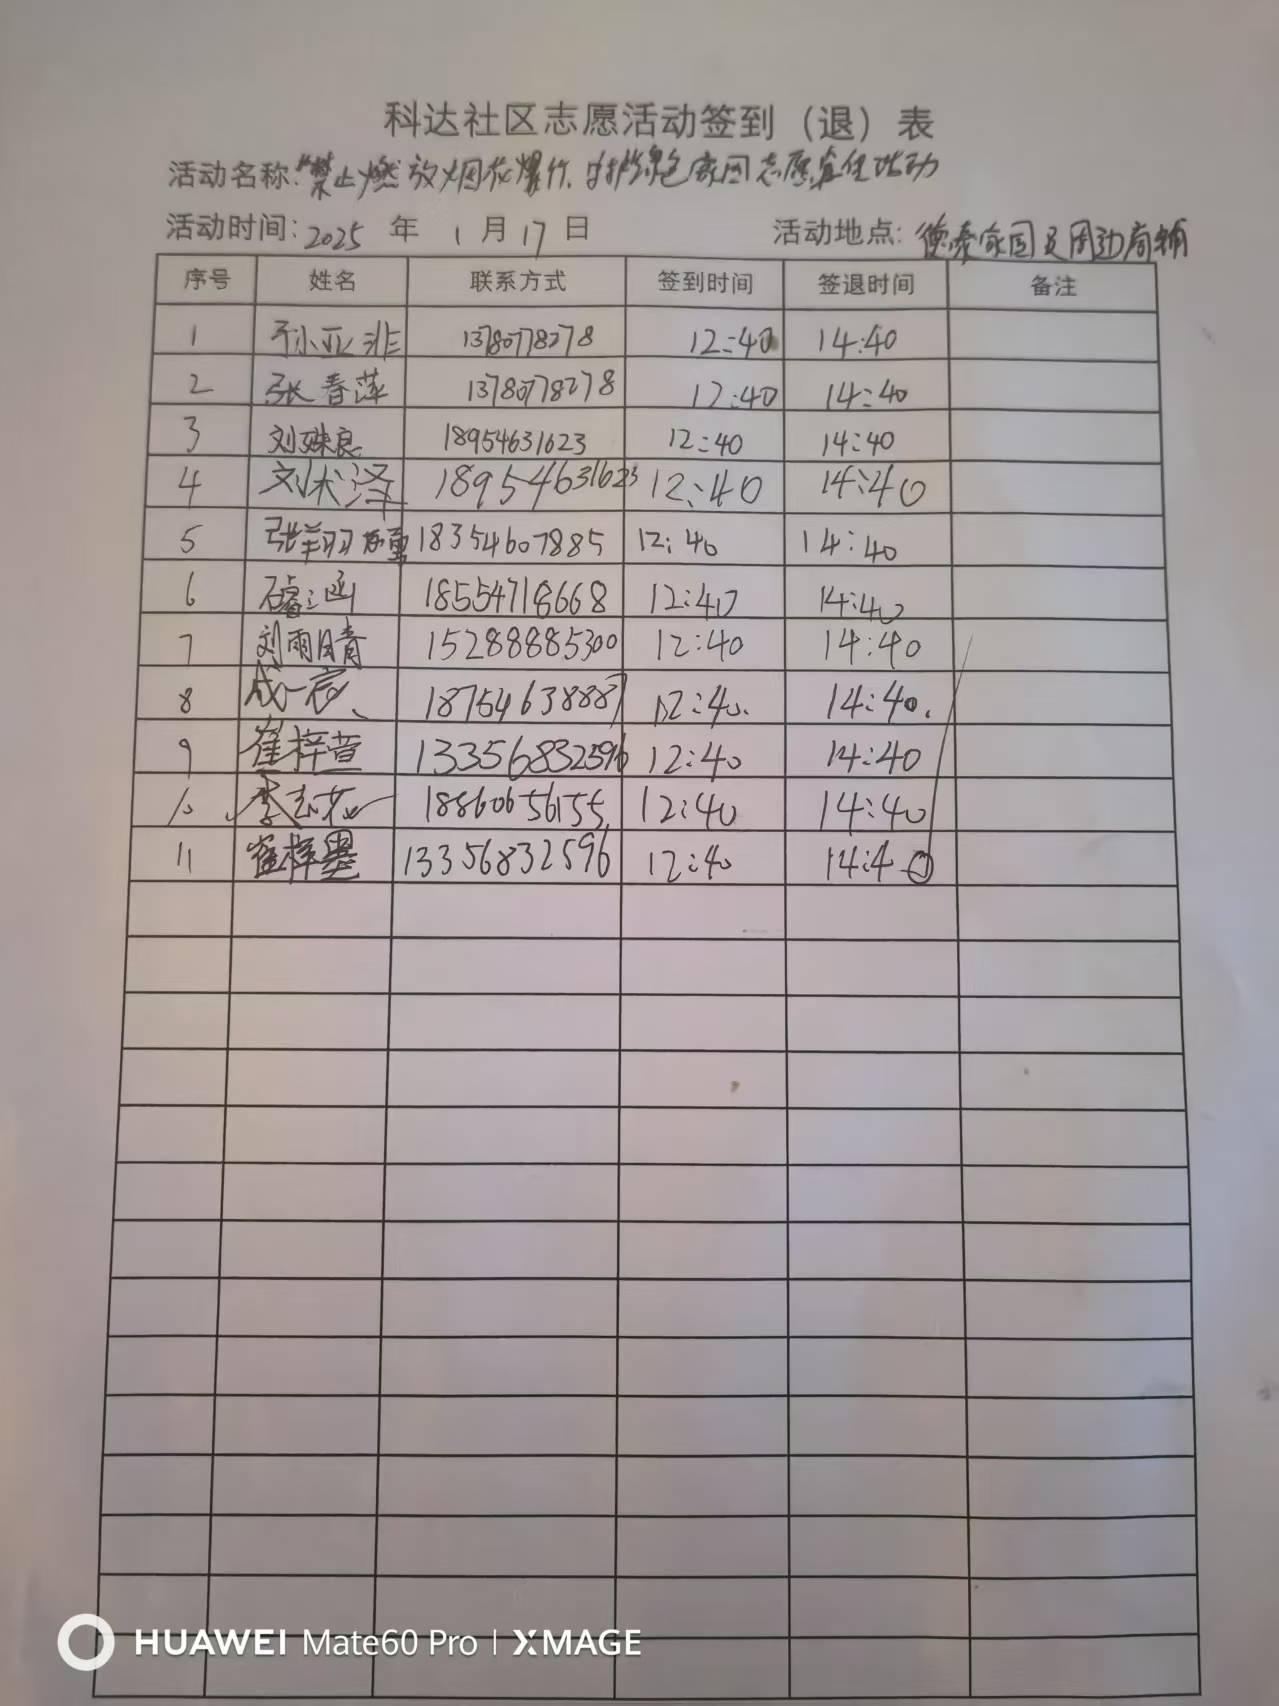 科达社区志愿活动签到（退）表
活动名称：“禁止燃放烟花爆竹、守护绿色家园志愿宣传活动
活动时间：2025 年 1 月 17 日 活动地点：德泰家园及周边商铺
序号 姓名 联系方式 签到时间 签退时间 备注
1 孙亚非 13780778278 12:40 14:40
2 张春萍 13780778278 12:40 14:40
3 刘姝良 18954631623 12:40 14:40
4 刘泽 18954631623 12:40 14:40
5 张翔 18354607885 12:40 14:40
6 18554718668 12:40 14:40
7 刘雨晴 15288885300 12:40 14:40
8 成一宸 18754638887 12:40. 14:40.
9 崔梓萱 13356832596 12:40 14:40
10 李 18860656155 12:40 14:40
11 崔梓墨 13356832596 12:40 14:40
HUAWEI Mate60 Pro | XMAGE